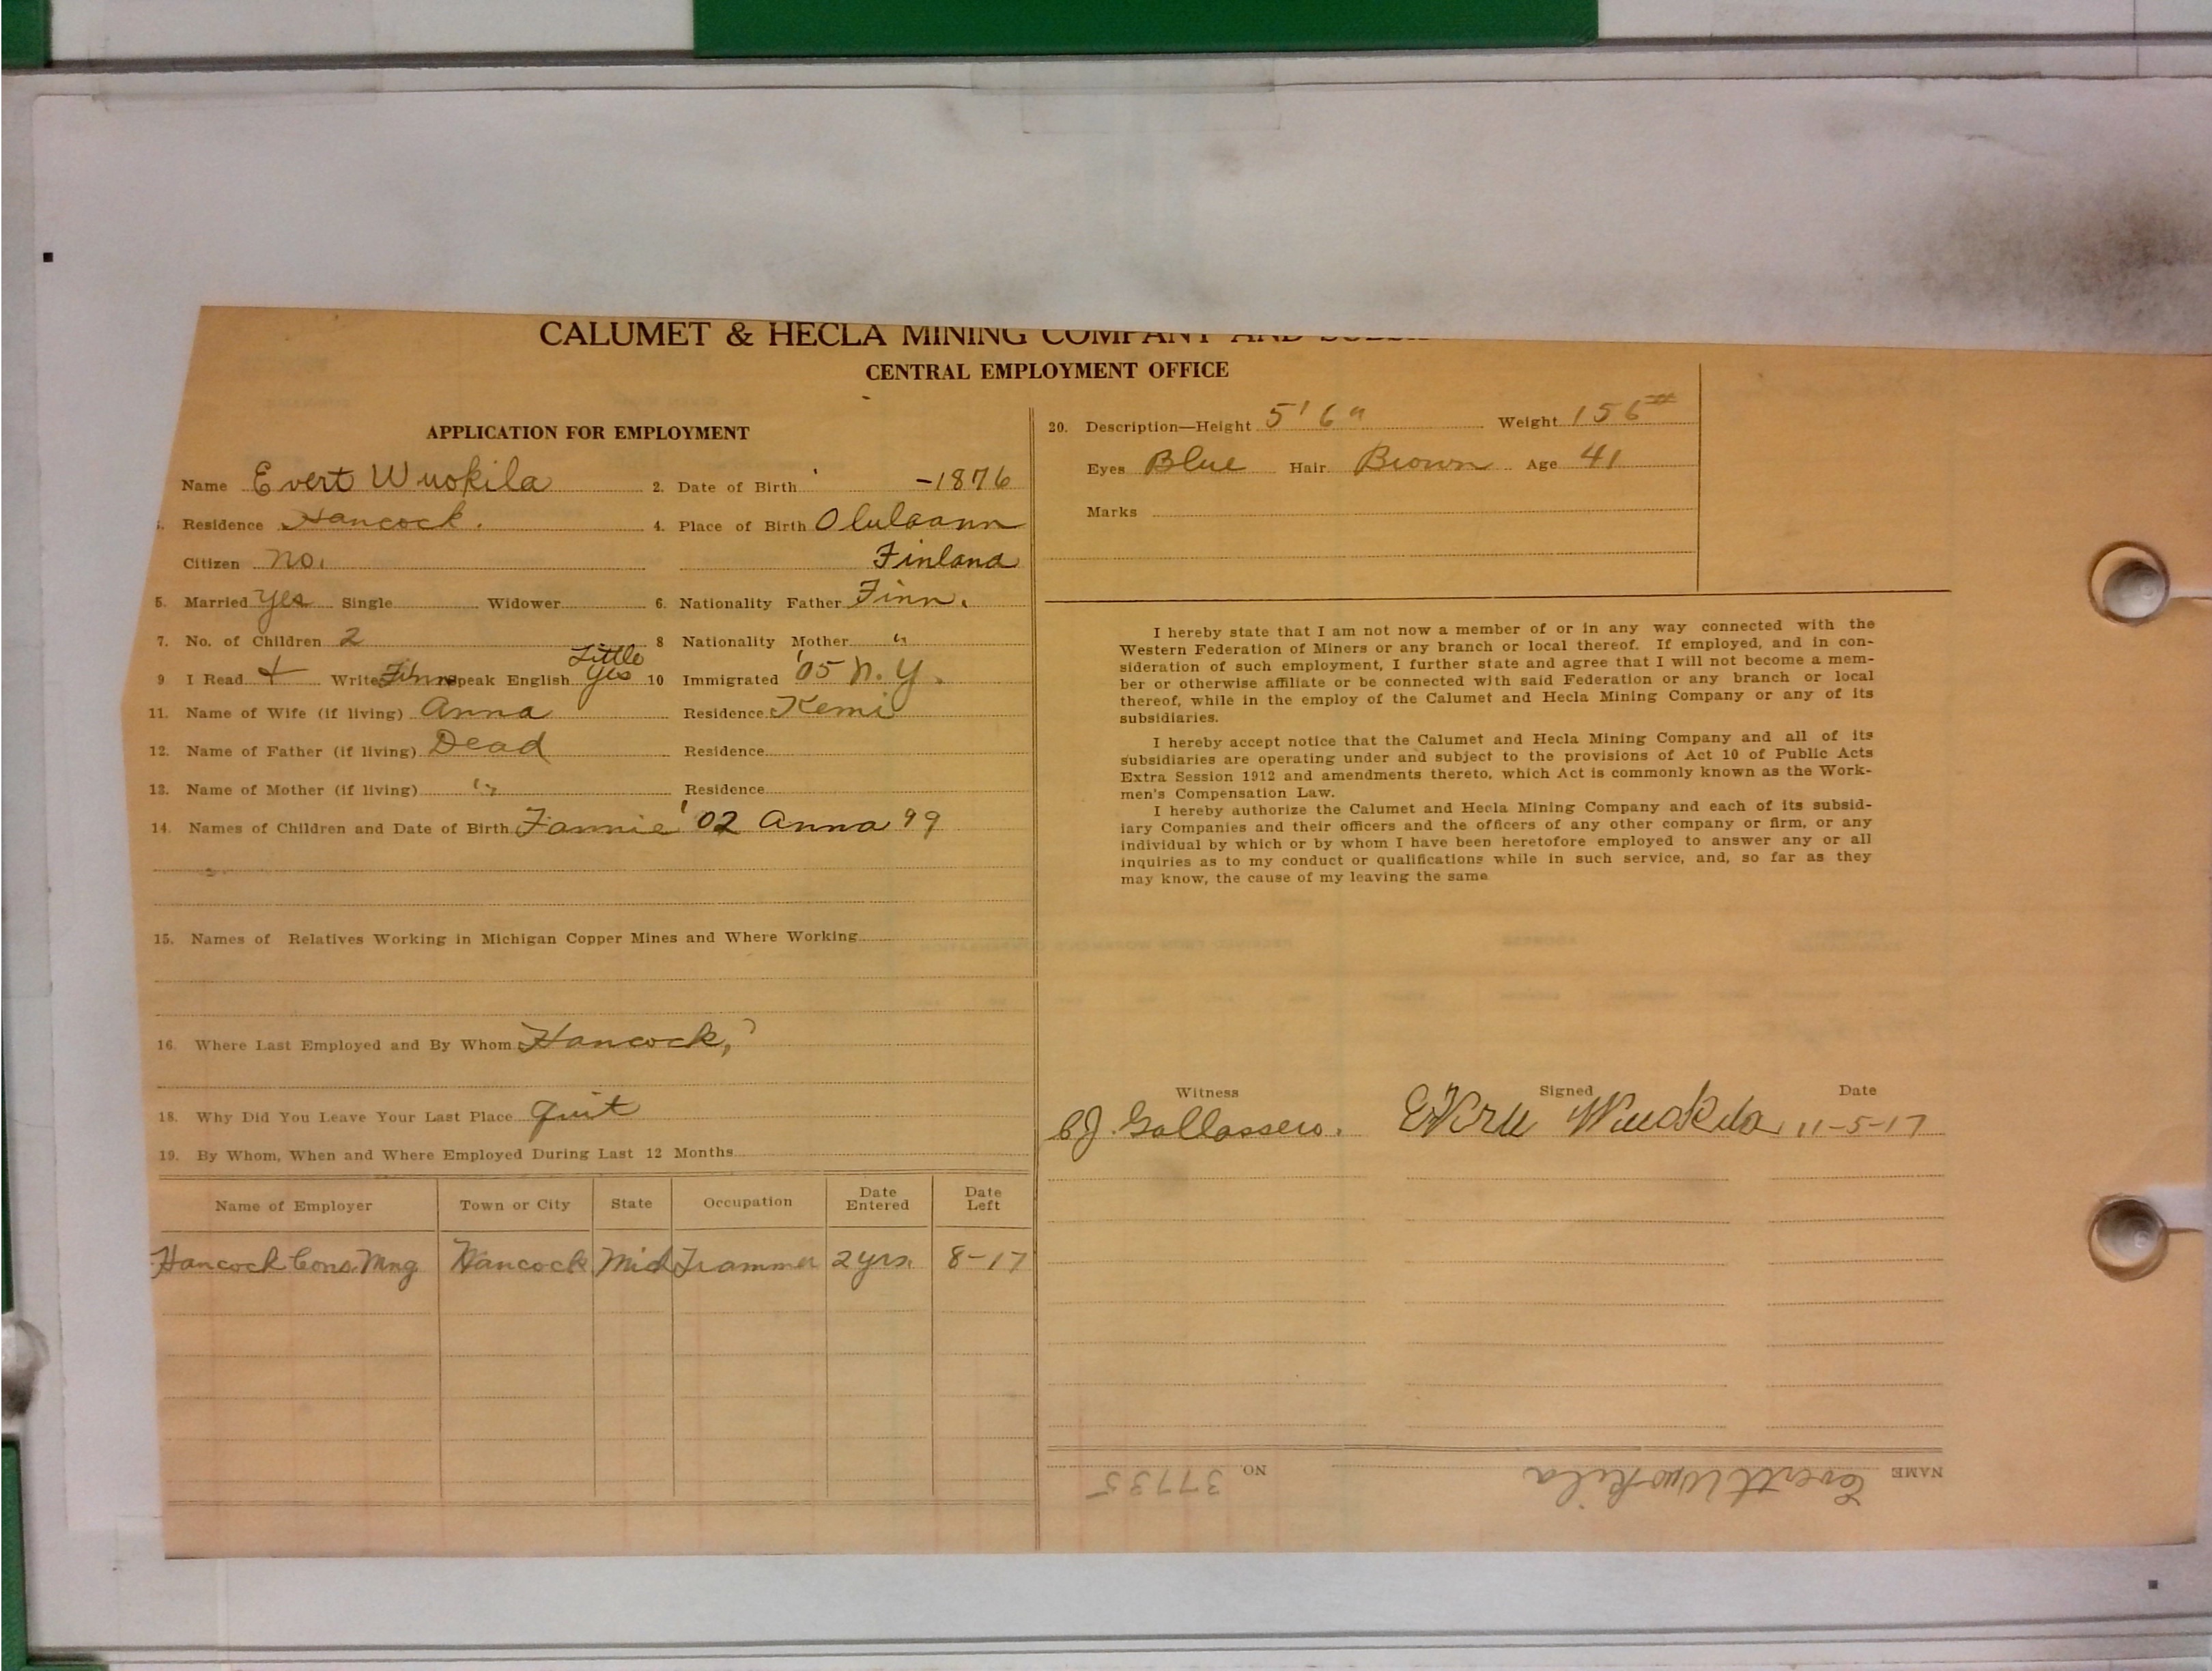 CALUMET & HECLA MINING COMPANY AND
CENTRAL EMPLOYMENT OFFICE
APPLICATION FOR EMPLOYMENT
Name Evert Wuokila
2. Date of Birth -1876
Residence Hancock.
4. Place of Birth Olulaann
Citizen no.
Finland
5. Married Yes Single Widower
6. Nationality Father Finn.
7. No. of Children 2
8 Nationality Mother "
Little
9 I Read + Write Finn Speak English Yes
10 Immigrated '05 N.Y.
11. Name of Wife (if living) Anna Residence Kemi
12. Name of Father (if living) Dead Residence
13. Name of Mother (if living) " Residence
14. Names of Children and Date of Birth Fannie '02 Anna 99
15. Names of Relatives Working in Michigan Copper Mines and Where Working
16. Where Last Employed and By Whom Hancock,
18. Why Did You Leave Your Last Place quit
19. By Whom, When and Where Employed During Last 12 Months
Name of Employer Town or City State Occupation Date Entered Date Left
Hancock Cons. Mng Hancock Mich Trammer 2 yrs. 8-17
20. Description—Height 5' 6" Weight 156#
Eyes Blue Hair Brown Age 41
Marks
I hereby state that I am not now a member of or in any way connected with the
Western Federation of Miners or any branch or local thereof. If employed, and in con-
sideration of such employment, I further state and agree that I will not become a mem-
ber or otherwise affiliate or be connected with said Federation or any branch or local
thereof, while in the employ of the Calumet and Hecla Mining Company or any of its
subsidiaries.
I hereby accept notice that the Calumet and Hecla Mining Company and all of its
subsidiaries are operating under and subject to the provisions of Act 10 of Public Acts
Extra Session 1912 and amendments thereto, which Act is commonly known as the Work-
men's Compensation Law.
I hereby authorize the Calumet and Hecla Mining Company and each of its subsid-
iary Companies and their officers and the officers of any other company or firm, or any
individual by which or by whom I have been heretofore employed to answer any or all
inquiries as to my conduct or qualifications while in such service, and, so far as they
may know, the cause of my leaving the same
Witness Signed Date
Wuokila 11-5-17
NAME Evertt Wuokila NO. 37735